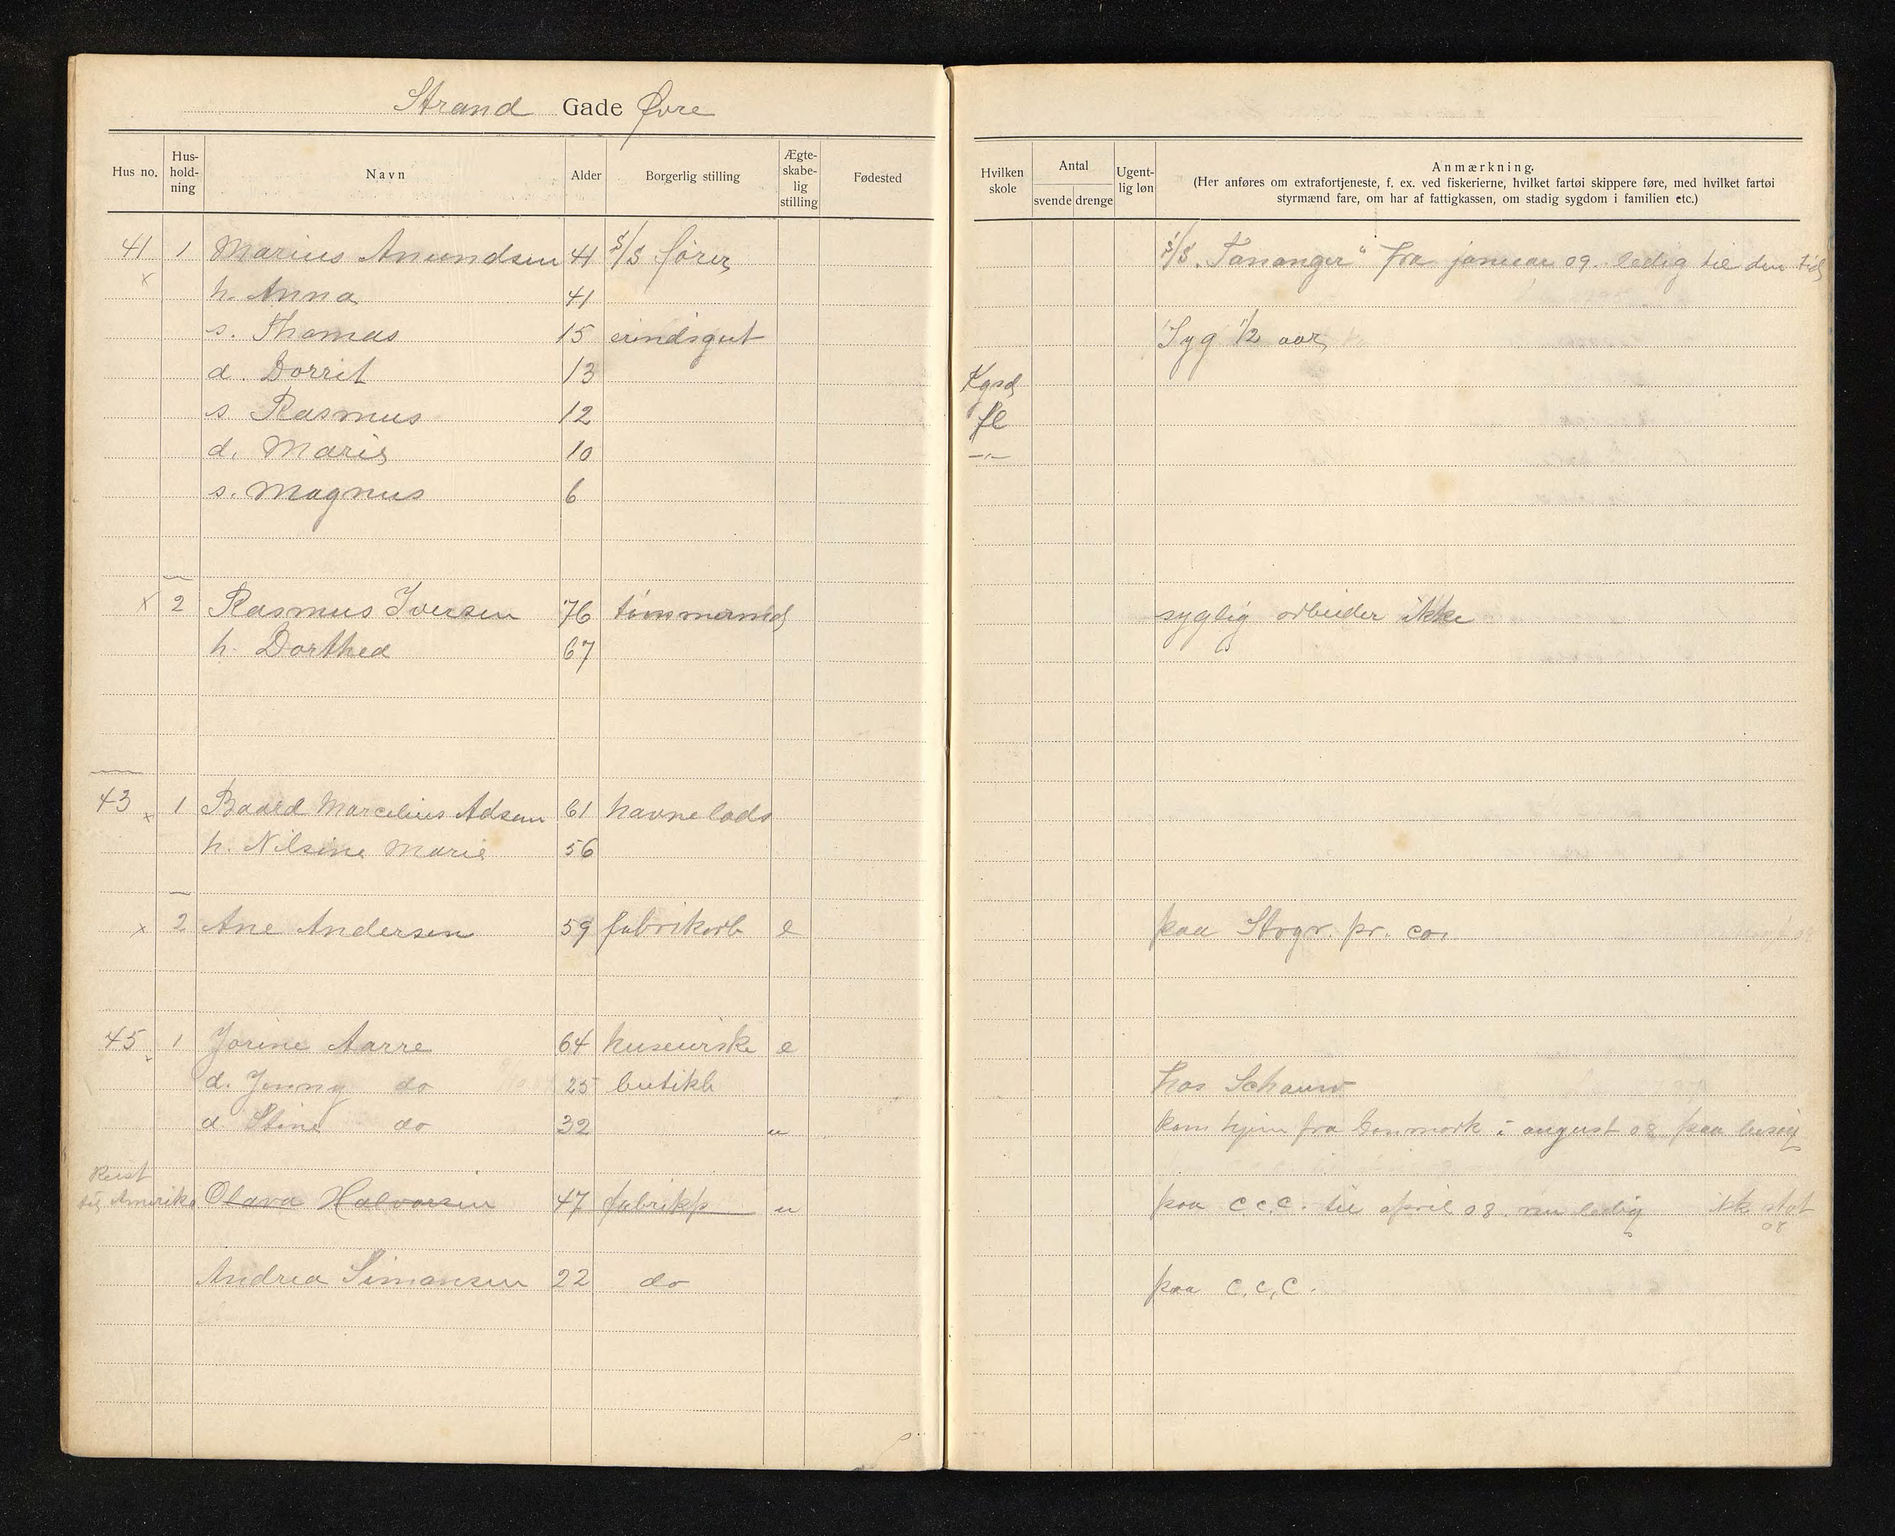 Strand Gade Øvre
Hus no. Hus-hold-ning Navn Alder Borgerlig stilling Ægte-skabe-lig stilling Fødested Hvilken skole Antal svende drenge Ugent-lig løn Anmærkning.
(Her anføres om extrafortjeneste, f. ex. ved fiskerierne, hvilket fartøi skippere føre, med hvilket fartøi
styrmænd fare, om har af fattigkassen, om stadig sygdom i familien etc.)
41 1 Marius Amundsen 41 S/S fører S/S "Tananger" fra januar 09. ledig til den tid
x h. Anna 41
s. Thomas 15 erindsgut Syg 1/2 aar
d. Dorrit 13 Kgsd
s Rasmus 12 fl
d. Marie 10 -"-
s. Magnus 6
x 2 Rasmus Iversen 76 syglig arbeider ikke
h. Dorthea 67
43 x 1 Baard Marcelius Adsen 61 havnelods
h. Nilsine Marie 56
x 2 Ane Andersen 59 fabrikarb e paa Stvgr. pr. co.
45 1 Jorine Aarre 64 e
d. Jenny do 25 butikb hos Schauw
d Stine do 32 u kom hjem fra Danmark i august 08 paa besøg
Reist
til Amerika Olava Halvorsen 47 fabrikp u paa C.C.C. til april 08 ledig ikk stat
08
Andrea Simonsen 22 do paa C.C.C.